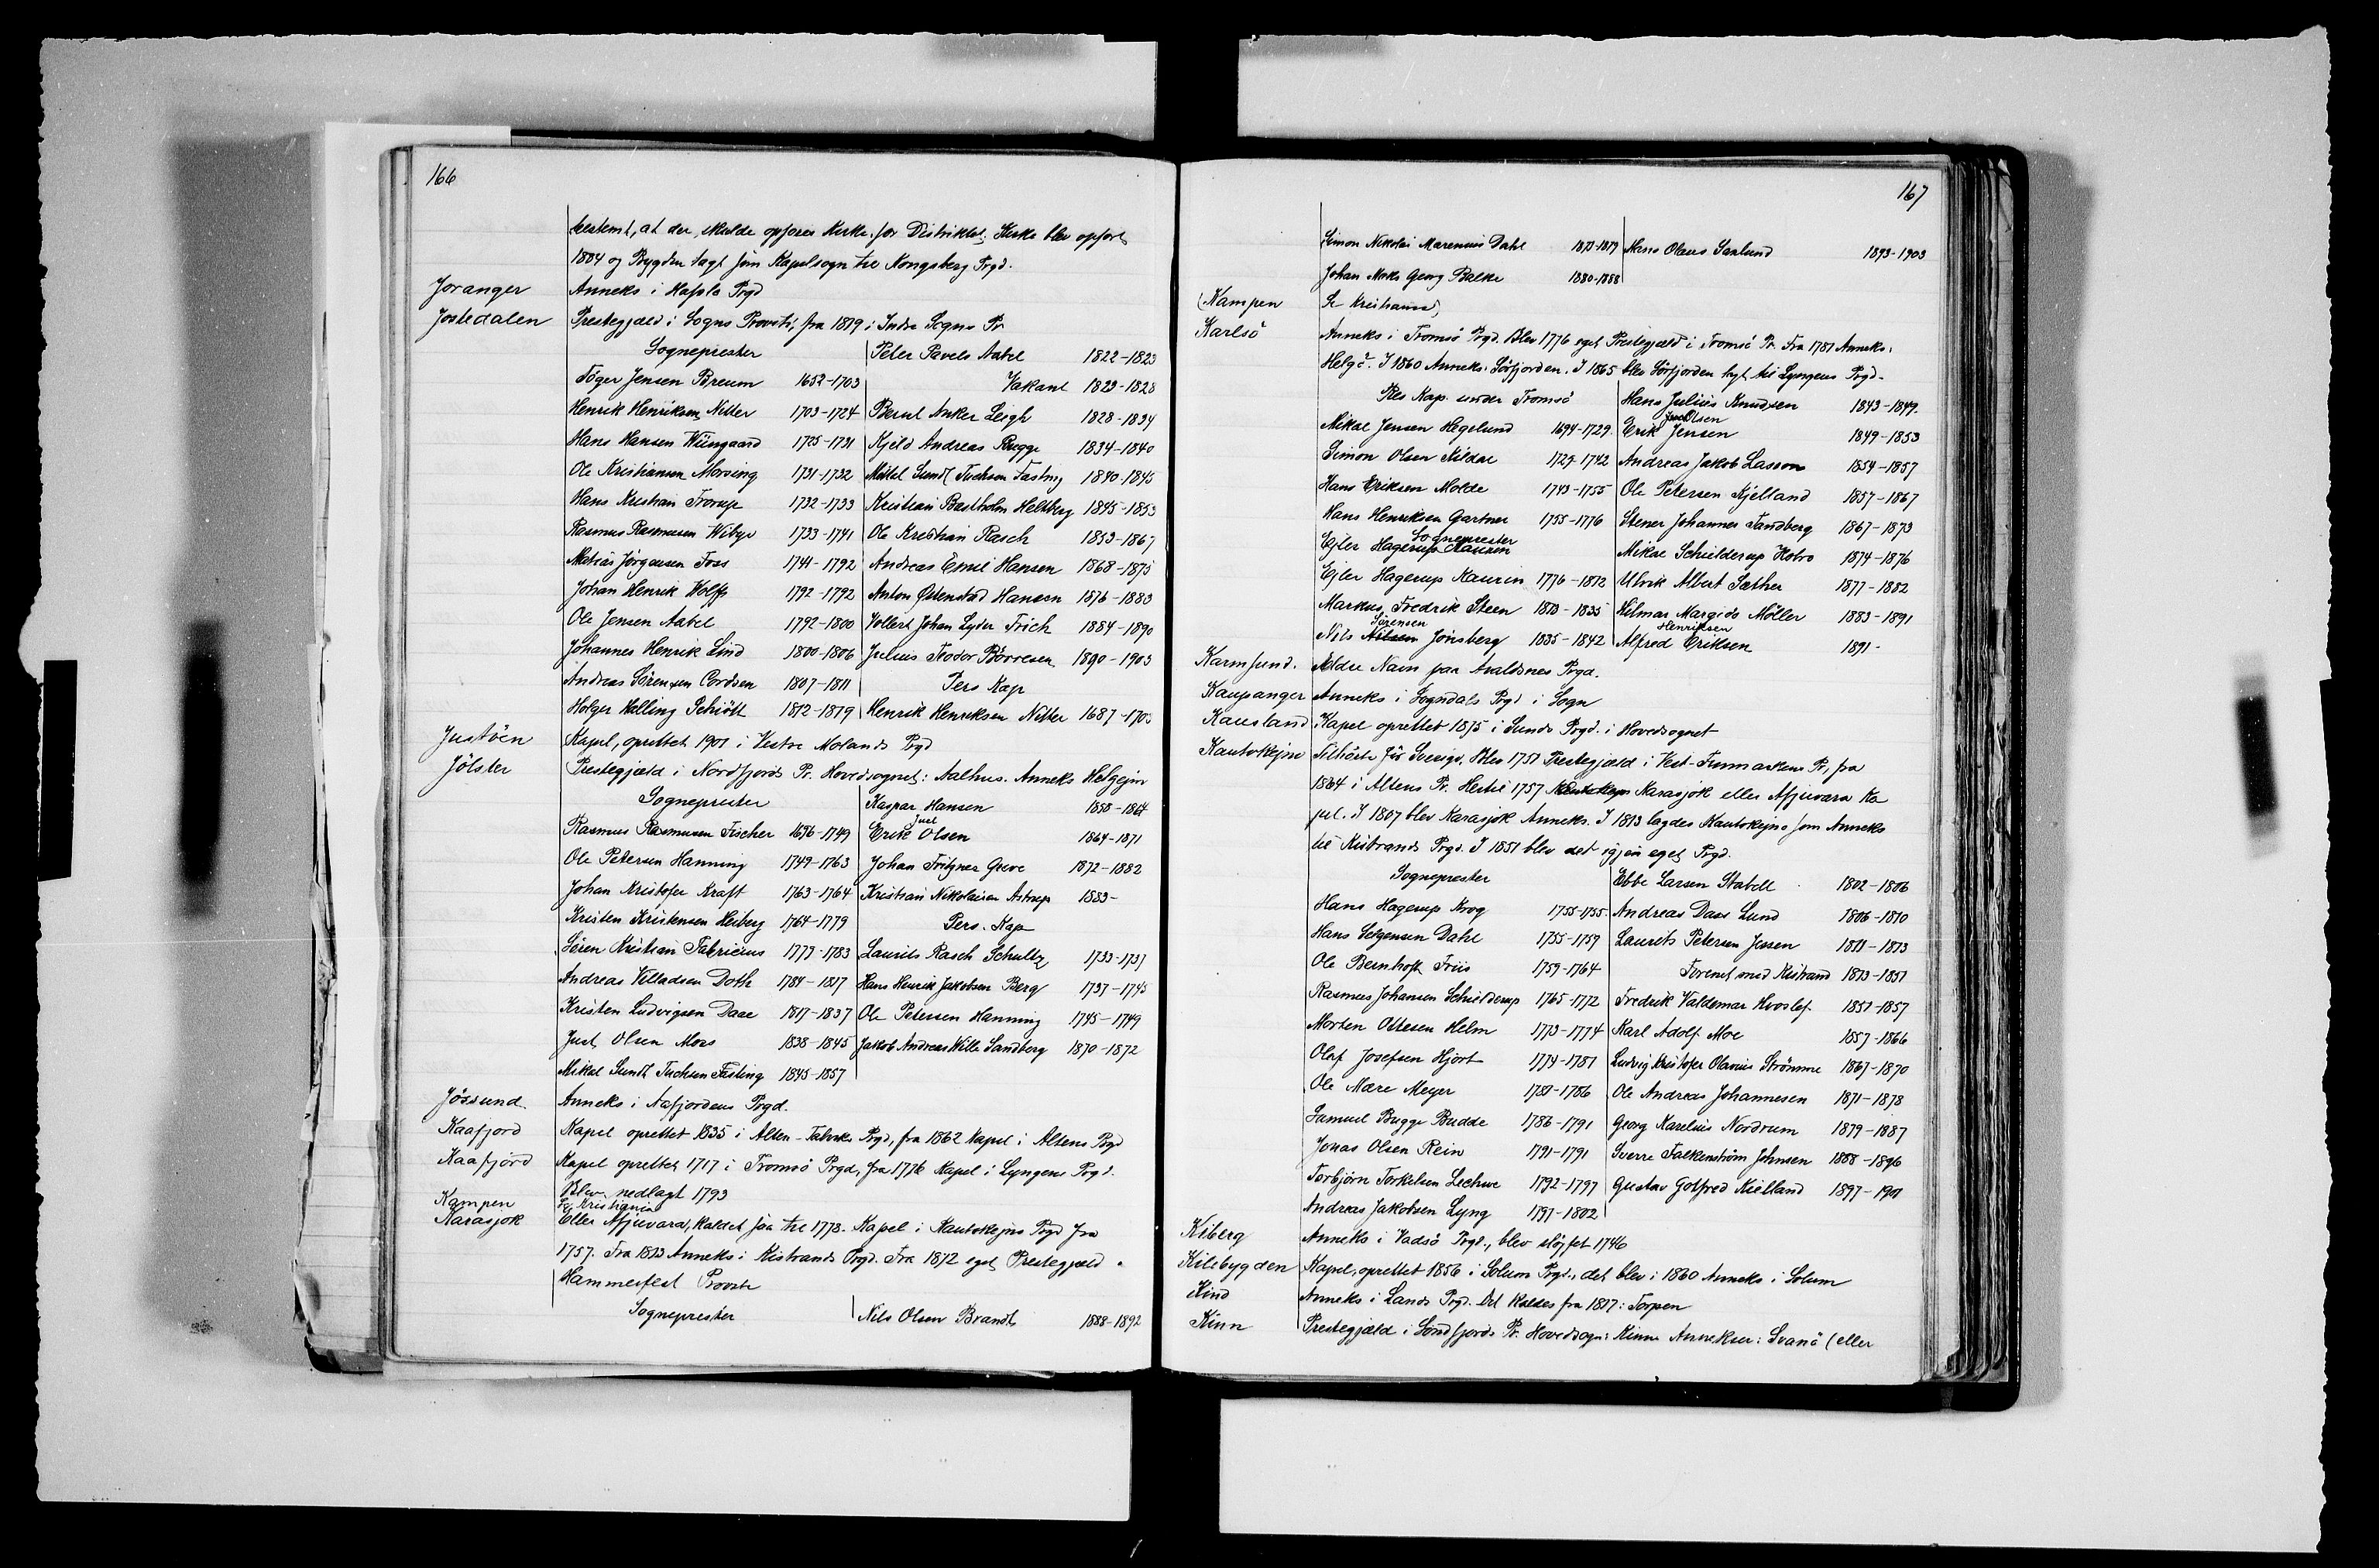 166
bestemt, at der skulde opføres Kirke for Distriktet. Kirke blev opført
1804 og Bygden lagt som Kapelsogn til Kongsberg Prgd.
Joranger Anneks i Hafslo Prgd
Jostedalen Prestegjæld i Sogns Provsti, fra 1819 i Indre Sogns Pr.
Sogneprester | Peter Pavels Aabel 1822-1823
Töger Jensen Breum 1652-1703 | Vakant 1823-1828
Henrik Henriksen Nitter 1703-1724 | Bernt Anker Leigh 1828-1834
Hans Hansen Wiingaard 1725-1731 | Kjeld Andreas Bugge 1834-1840
Ole Kristiansen Morsing 1731-1732 | Mikal Sundt Tuchsen Fasting 1840-1845
Hans Kristian Trorup 1732-1733 | Kristian Bastholm Heltberg 1845-1853
Rasmus Rasmussen Wibye 1733-1741 | Ole Kristian Rasch 1853-1867
Matias Jörgensen Foss 1741-1792 | Andreas Emil Hansen 1868-1875
Johan Henrik Wolff 1792-1792 | Anton Østenstad Hansen 1876-1883
Ole Jensen Aabel 1792-1800 | Vollert Johan Lyder Frich 1884-1890
Johannes Henrik Lind 1800-1806 | Julius Teodor Börresen 1890-1903
Andreas Sörensen Cordsen 1807-1811 | Pers Kap
Holger Helling Schiött 1812-1819 | Henrik Henriksen Nitter 1687-1703
Justöen Kapel, oprettet 1901 i Vestre Molands Prgd
Jölster Prestegjæld i Nordfjords Pr. Hovedsognet: Aalhus. Anneks Helgejm
Sogneprester | Kaspar Hansen 1858-1864
Rasmus Rasmussen Fischer 1696-1749 | Erik Juel Olsen 1864-1871
Ole Petersen Hanning 1749-1763 | Johan Fritzner Greve 1872-1882
Johan Kristofer Kraft 1763-1764 | Kristian Nikolaisen Astrup 1883-
Kristen Kristensen Heiberg 1764-1779 | Pers. Kap
Sören Kristian Fabricius 1779-1783 | Laurits Rasch Schultz 1733-1737
Andreas Villadsen Doth 1784-1817 | Hans Henrik Jakobsen Berg 1737-1745
Kristen Ludvigsen Daae 1817-1837 | Ole Petersen Hanning 1745-1749
Just Olsen Moss 1838-1845 | Jakob Andreas Wille Sandberg 1870-1872
Mikal Sundt Tuchsen Fasting 1845-1857
Jössund Anneks i Aafjordens Prgd.
Kaafjord Kapel oprettet 1835 i Alten-Talviks Prgd, fra 1862 Kapel i Altens Prgd
Kaafjord Kapel oprettet 1717 i Tromsö Prgd, fra 1776 Kapel i Lyngens Prgd.
Blev nedlagt 1793
Kampen Se Kristiania
Karasjok Eller Afjuvara, kaldet saa til 1773. Kapel i Kautokejno Prgd fra
1757. Fra 1813 Anneks i Kistrands Prgd. Fra 1872 eget Prestegjæld i
Hammerfest Provsti
Sogneprester | Nils Olsen Brandt 1888-1892
167
Simon Nikolai Marenius Dahl 1873-1879 | Hans Olaus Saxlund 1893-1903
Johan Maks Georg Balke 1880-1888
(Kampen Se Kristiania)
Karlsö Anneks i Tromsö Prgd. Blev 1776 eget Prestegjæld i Tromsö Pr. Fra 1781 Anneks:
Helgö. I 1860 Anneks: Sörfjorden. I 1865 blev Sörfjorden lagt til Lyngens Prgd.
Res Kap. under Tromsö | Hans Julius Knudsen 1843-1849.
Mikal Jensen Hegelund 1694-1729. | Erik Juel Olsen Jensen 1849-1853
Simon Olsen Kildal 1729-1742 | Andreas Jakob Lasson 1854-1857
Hans Eriksen Molde 1743-1755 | Ole Petersen Kjelland 1857-1867
Hans Henriksen Gartner 1755-1776 | Stener Johannes Sandberg 1867-1873
Sogneprester
Ejler Hagerup Kaurin | Mikal Schielderup Holvo 1874-1876
Ejler Hagerup Kaurin 1776-1812 | Ulrik Albert Sæther 1877-1882
Markus Fredrik Steen 1813-1835 | Hilmar Margido Möller 1883-1891
Nils Sörensen Nilsen Jönsberg 1835-1842 | Alfred Henriksen Eriksen 1891-
Karmsund. Ældre Navn paa Avaldsnes Prgd.
Kaupanger Anneks i Sogndals Prgd i Sogn
Kausland Kapel oprettet 1875 i Sunds Prgd. i Hovedsognet
Kautokejno Tilhörte för Sverige. Blev 1751 Prestegjæld i Vest-Finmarkens Pr, fra
1864 i Altens Pr. Hertil 1757 Karasjok eller Afjuvara Ka
pel. I 1807 blev Karasjok Anneks. I 1813 lagdes Kautokejno som Anneks
til Kistrands Prgd. I 1851 blev det igjen eget Prgd.
Sogneprester | Ebbe Larsen Stabell 1802-1806
Hans Hagerup Krog 1755-1755. | Andreas Daas Lund 1806-1810
Hans Jörgensen Dahl 1755-1759 | Laurits Petersen Jensen 1811-1813
Ole Bernhoft Friis 1759-1764 | Forenet med Kistrand 1813-1851
Rasmus Johansen Schielderup 1765-1772 | Fredrik Valdemar Hvoslef 1851-1857
Morten Ottesen Helm 1773-1774 | Karl Adolf Moe 1857-1866
Olaf Josefsen Hjort 1774-1781 | Ludvig Kristofer Olavius Strömme 1867-1870
Ole Mære Meyer 1781-1786 | Ole Andreas Johannesen 1871-1878
Samuel Bugge Budde 1786-1791 | Georg Karelius Nordrum 1879-1887
Jonas Olsen Rein 1791-1791 | Sverre Falkenström Johnsen 1888-1896
Torbjörn Torkelsen Lechve 1792-1797 | Gustav Gotfred Kielland 1897-1901
Andreas Jakobsen Lyng 1797-1802
Kiberg Anneks i Vadsö Prgd., blev slöjfet 1746
Kilebygden Kapel, oprettet 1856 i Solum Prgd., det blev i 1860 Anneks i Solum
Kind Anneks i Lands Prgd. Det kaldes fra 1817: Torpen
Kinn Prestegjæld i Söndfjords Pr. Hovedsogn: Kinn. Annekser: Svanö (eller